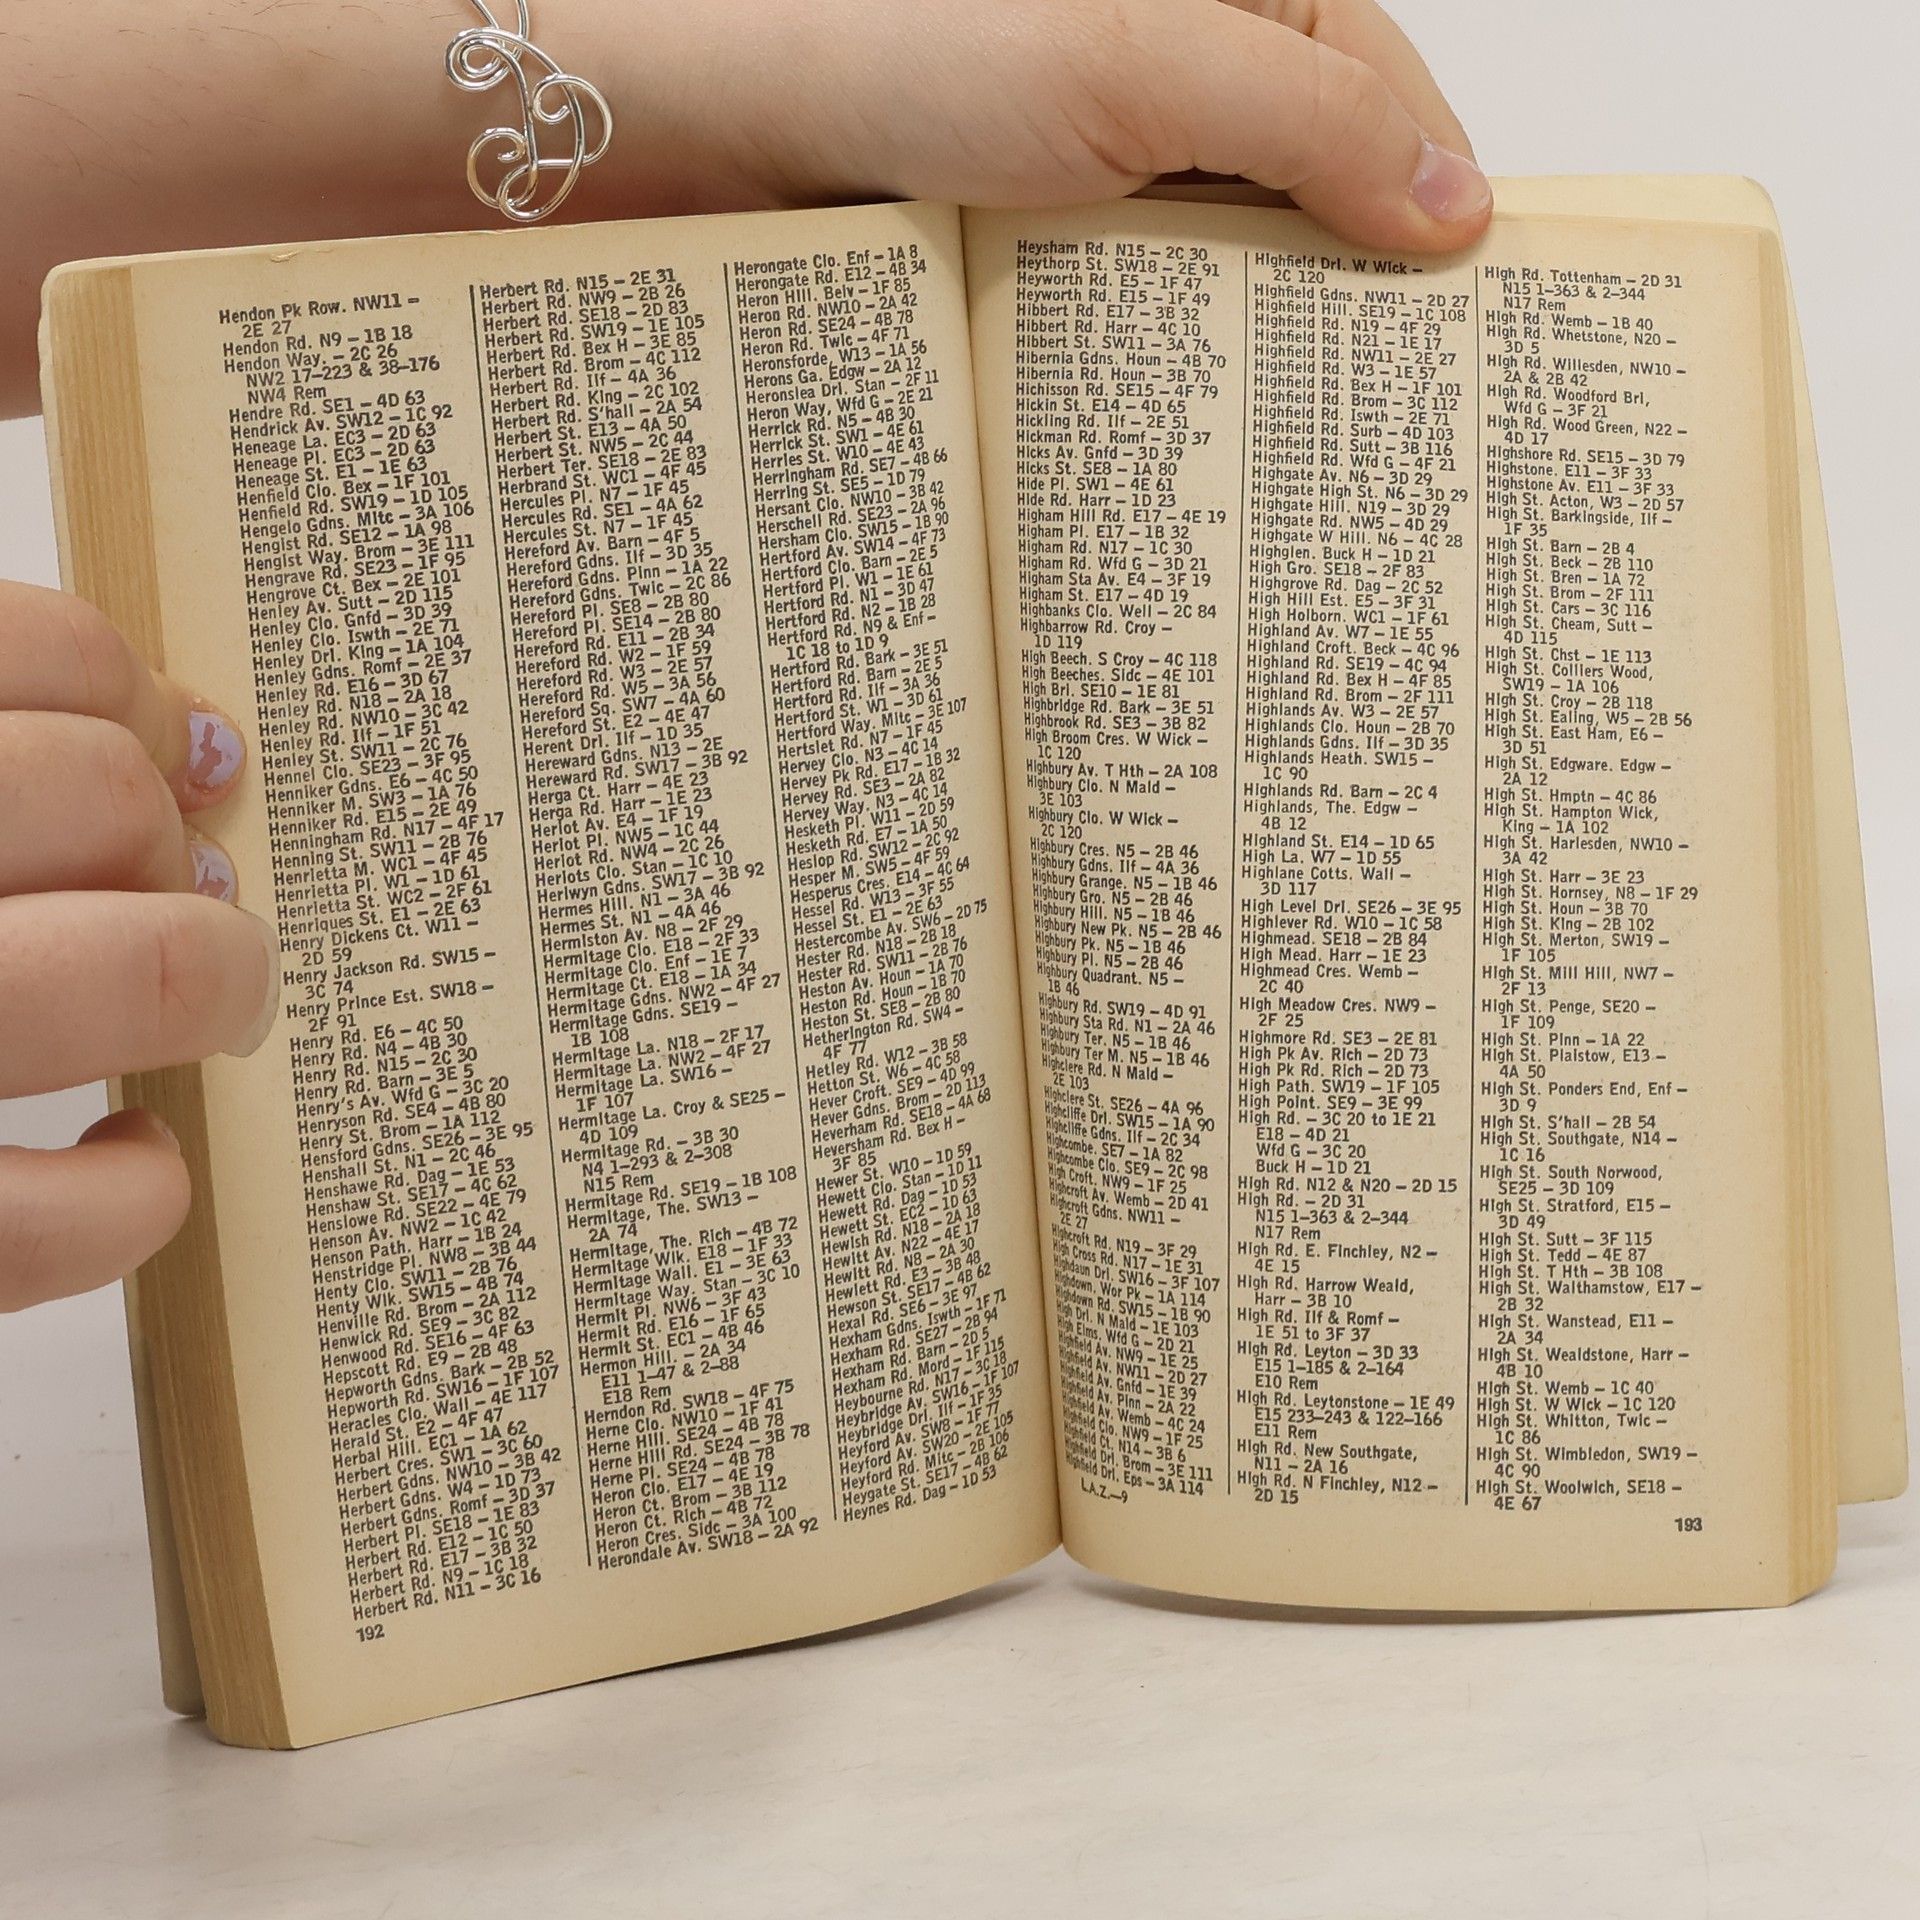 Hendon Pk Row. NW11 –
2E 27
Hendon Rd. N9 – 1B 18
Hendon Way. – 2C 26
NW2 17–223 & 38–176
NW4 Rem
Hendre Rd. SE1 – 4D 63
Hendrick Av. SW12 – 1C 92
Heneage La. EC3 – 2D 63
Heneage Pl. EC3 – 2D 63
Heneage St. E1 – 1E 63
Henfield Clo. Bex – 1F 101
Henfield Rd. SW19 – 1D 105
Hengelo Gdns. Mitc – 3A 106
Hengist Rd. SE12 – 1A 98
Hengist Way. Brom – 3E 111
Hengrave Rd. SE23 – 1F 95
Hengrove Ct. Bex – 2E 101
Henley Av. Sutt – 2D 115
Henley Clo. Gnfd – 3D 39
Henley Clo. Iswth – 2E 71
Henley Dri. King – 1A 104
Henley Gdns. Romf – 2E 37
Henley Rd. E16 – 3D 67
Henley Rd. N18 – 2A 18
Henley Rd. NW10 – 3C 42
Henley Rd. Ilf – 1F 51
Henley St. SW11 – 2C 76
Hennel Clo. SE23 – 3F 95
Henniker Gdns. E6 – 4C 50
Henniker M. SW3 – 1A 76
Henniker Rd. E15 – 2E 49
Henningham Rd. N17 – 4F 17
Henning St. SW11 – 2B 76
Henrietta M. WC1 – 4F 45
Henrietta Pl. W1 – 1D 61
Henrietta St. WC2 – 2F 61
Henriques St. E1 – 2E 63
Henry Dickens Ct. W11 –
2D 59
Henry Jackson Rd. SW15 –
3C 74
Henry Prince Est. SW18 –
2F 91
Henry Rd. E6 – 4C 50
Henry Rd. N4 – 4B 30
Henry Rd. N15 – 2C 30
Henry Rd. Barn – 3E 5
Henry's Av. Wfd G – 3C 20
Henryson Rd. SE4 – 4B 80
Henry St. Brom – 1A 112
Hensford Gdns. SE26 – 3E 95
Henshall St. N1 – 2C 46
Henshawe Rd. Dag – 1E 53
Henshaw St. SE17 – 4C 62
Henslowe Rd. SE22 – 4E 79
Henson Av. NW2 – 1C 42
Henson Path. Harr – 1B 24
Henstridge Pl. NW8 – 3B 44
Henty Clo. SW11 – 2B 76
Henty Wlk. SW15 – 4B 74
Henville Rd. Brom – 2A 112
Henwick Rd. SE9 – 3C 82
Henwood Rd. SE16 – 4F 63
Hepscott Rd. E9 – 2B 48
Hepworth Gdns. Bark – 2B 52
Hepworth Rd. SW16 – 1F 107
Heracles Clo. Wall – 4E 117
Herald St. E2 – 4F 47
Herbal Hill. EC1 – 1A 62
Herbert Cres. SW1 – 3C 60
Herbert Gdns. NW10 – 3B 42
Herbert Gdns. W4 – 1D 73
Herbert Gdns. Romf – 3D 37
Herbert Pl. SE18 – 1E 83
Herbert Rd. E12 – 1C 50
Herbert Rd. E17 – 3B 32
Herbert Rd. N9 – 1C 18
Herbert Rd. N11 – 3C 16
192
Herbert Rd. N15 – 2E 31
Herbert Rd. NW9 – 2B 26
Herbert Rd. SE18 – 2D 83
Herbert Rd. SW19 – 1E 105
Herbert Rd. Bex H – 3E 85
Herbert Rd. Brom – 4C 112
Herbert Rd. Ilf – 4A 36
Herbert Rd. King – 2C 102
Herbert Rd. S'hall – 2A 54
Herbert St. E13 – 4A 50
Herbert St. NW5 – 2C 44
Herbert Ter. SE18 – 2E 83
Herbrand St. WC1 – 4F 45
Hercules Pl. N7 – 1F 45
Hercules Rd. SE1 – 4A 62
Hercules St. N7 – 1F 45
Hereford Av. Barn – 4F 5
Hereford Gdns. Ilf – 3D 35
Hereford Gdns. Pinn – 1A 22
Hereford Gdns. Twic – 2C 86
Hereford Pl. SE8 – 2B 80
Hereford Pl. SE14 – 2B 80
Hereford Rd. E11 – 2B 34
Hereford Rd. W2 – 1F 59
Hereford Rd. W3 – 2E 57
Hereford Rd. W5 – 3A 56
Hereford Sq. SW7 – 4A 60
Hereford St. E2 – 4E 47
Herent Dri. Ilf – 1D 35
Hereward Gdns. N13 – 2E
Hereward Rd. SW17 – 3B 92
Herga Ct. Harr – 4E 23
Herga Rd. Harr – 1E 23
Heriot Av. E4 – 1F 19
Heriot Pl. NW5 – 1C 44
Heriot Rd. NW4 – 2C 26
Heriots Clo. Stan – 1C 10
Herlwyn Gdns. SW17 – 3B 92
Hermes Hill. N1 – 3A 46
Hermes St. N1 – 4A 46
Hermiston Av. N8 – 2F 29
Hermitage Clo. E18 – 2F 33
Hermitage Clo. Enf – 1E 7
Hermitage Ct. E18 – 1A 34
Hermitage Gdns. NW2 – 4F 27
Hermitage Gdns. SE19 –
1B 108
Hermitage La. N18 – 2F 17
Hermitage La. NW2 – 4F 27
Hermitage La. SW16 –
1F 107
Hermitage La. Croy & SE25 –
4D 109
Hermitage Rd. – 3B 30
N4 1–293 & 2–308
N15 Rem
Hermitage Rd. SE19 – 1B 108
Hermitage, The. SW13 –
2A 74
Hermitage, The. Rich – 4B 72
Hermitage Wlk. E18 – 1F 33
Hermitage Wall. E1 – 3E 63
Hermitage Way. Stan – 3C 10
Hermit Pl. NW6 – 3F 43
Hermit Rd. E16 – 1F 65
Hermit St. EC1 – 4B 46
Hermon Hill. – 2A 34
E11 1–47 & 2–88
E18 Rem
Herndon Rd. SW18 – 4F 75
Herne Clo. NW10 – 1F 41
Herne Hill. SE24 – 4B 78
Herne Hill Rd. SE24 – 3B 78
Herne Pl. SE24 – 4B 78
Heron Clo. E17 – 4E 19
Heron Ct. Brom – 3B 112
Heron Ct. Rich – 4B 72
Heron Cres. Sidc – 3A 100
Herondale Av. SW18 – 2A 92
Herongate Clo. Enf – 1A 8
Herongate Rd. E12 – 4B 34
Heron Hill. Belv – 1F 85
Heron Rd. NW10 – 2A 42
Heron Rd. SE24 – 4B 78
Heron Rd. Twic – 4F 71
Heronsforde, W13 – 1A 56
Herons Ga. Edgw – 2A 12
Heronslea Dri. Stan – 2F 11
Heron Way, Wfd G – 2E 21
Herrick Rd. N5 – 4B 30
Herrick St. SW1 – 4E 61
Herries St. W10 – 4E 43
Herringham Rd. SE7 – 4B 66
Herring St. SE5 – 1D 79
Hersant Clo. NW10 – 3B 42
Herschell Rd. SE23 – 2A 96
Hersham Clo. SW15 – 1B 90
Hertford Av. SW14 – 4F 73
Hertford Clo. Barn – 2E 5
Hertford Pl. W1 – 1E 61
Hertford Rd. N1 – 3D 47
Hertford Rd. N2 – 1B 28
Hertford Rd. N9 & Enf –
1C 18 to 1D 9
Hertford Rd. Bark – 3E 51
Hertford Rd. Barn – 2E 5
Hertford Rd. Ilf – 3A 36
Hertford St. W1 – 3D 61
Hertford Way. Mitc – 3E 107
Hertslet Rd. N7 – 1F 45
Hervey Clo. N3 – 4C 14
Hervey Pk Rd. E17 – 1B 32
Hervey Rd. SE3 – 2A 82
Hervey Way. N3 – 4C 14
Hesketh Pl. W11 – 2D 59
Hesketh Rd. E7 – 1A 50
Heslop Rd. SW12 – 2C 92
Hesper M. SW5 – 4F 59
Hesperus Cres. E14 – 4C 64
Hessel Rd. W13 – 3F 55
Hessel St. E1 – 2E 63
Hestercombe Av. SW6 – 2D 75
Hester Rd. N18 – 2B 18
Hester Rd. SW11 – 2B 76
Heston Av. Houn – 1A 70
Heston Rd. Houn – 1B 70
Heston St. SE8 – 2B 80
Hetherington Rd. SW4 –
4F 77
Hetley Rd. W12 – 3B 58
Hetton St. W6 – 4C 58
Hever Croft. SE9 – 4D 99
Hever Gdns. Brom – 2D 113
Heverham Rd. SE18 – 4A 68
Heversham Rd. Bex H –
3F 85
Hewer St. W10 – 1D 59
Hewett Clo. Stan – 1D 11
Hewett Rd. Dag – 1D 53
Hewett St. EC2 – 1D 63
Hewish Rd. N18 – 2A 18
Hewitt Av. N22 – 4E 17
Hewitt Rd. N8 – 2A 30
Hewlett Rd. E3 – 3B 48
Hewson St. SE17 – 4B 62
Hexal Rd. SE6 – 3E 97
Hexham Gdns. Iswth – 1F 71
Hexham Rd. SE27 – 2B 94
Hexham Rd. Barn – 2D 5
Hexham Rd. Mord – 1F 115
Heybourne Rd. N17 – 3C 18
Heybridge Av. SW16 – 1F 107
Heybridge Dri. Ilf – 1F 35
Heyford Av. SW8 – 1F 77
Heyford Av. SW20 – 2E 105
Heyford Rd. Mitc – 2B 106
Heygate St. SE17 – 4B 62
Heynes Rd. Dag – 1D 53
Heysham Rd. N15 – 2C 30
Heythorp St. SW18 – 2E 91
Heyworth Rd. E5 – 1F 47
Heyworth Rd. E15 – 1F 49
Hibbert Rd. E17 – 3B 32
Hibbert Rd. Harr – 4C 10
Hibbert St. SW11 – 3A 76
Hibernia Gdns. Houn – 4B 70
Hibernia Rd. Houn – 3B 70
Hichisson Rd. SE15 – 4F 79
Hickin St. E14 – 4D 65
Hickling Rd. Ilf – 2E 51
Hickman Rd. Romf – 3D 37
Hicks Av. Gnfd – 3D 39
Hicks St. SE8 – 1A 80
Hide Pl. SW1 – 4E 61
Hide Rd. Harr – 1D 23
Higham Hill Rd. E17 – 4E 19
Higham Pl. E17 – 1B 32
Higham Rd. N17 – 1C 30
Higham Rd. Wfd G – 3D 21
Higham Sta Av. E4 – 3F 19
Higham St. E17 – 4D 19
Highbanks Clo. Well – 2C 84
Highbarrow Rd. Croy –
1D 119
High Beech. S Croy – 4C 118
High Beeches. Sidc – 4E 101
High Bri. SE10 – 1E 81
Highbridge Rd. Bark – 3E 51
Highbrook Rd. SE3 – 3B 82
High Broom Cres. W Wick –
1C 120
Highbury Av. T Hth – 2A 108
Highbury Clo. N Mald –
3E 103
Highbury Clo. W Wick –
2C 120
Highbury Cres. N5 – 2B 46
Highbury Gdns. Ilf – 4A 36
Highbury Grange. N5 – 1B 46
Highbury Gro. N5 – 2B 46
Highbury Hill. N5 – 1B 46
Highbury New Pk. N5 – 2B 46
Highbury Pk. N5 – 1B 46
Highbury Pl. N5 – 2B 46
Highbury Quadrant. N5 –
1B 46
Highbury Rd. SW19 – 4D 91
Highbury Sta Rd. N1 – 2A 46
Highbury Ter. N5 – 1B 46
Highbury Ter M. N5 – 1B 46
Highclere Rd. N Mald –
2E 103
Highclere St. SE26 – 4A 96
Highcliffe Dri. SW15 – 1A 90
Highcliffe Gdns. Ilf – 2C 34
Highcombe. SE7 – 1A 82
Highcombe Clo. SE9 – 2C 98
High Croft. NW9 – 1F 25
Highcroft Av. Wemb – 2D 41
Highcroft Gdns. NW11 –
2E 27
Highcroft Rd. N19 – 3F 29
High Cross Rd. N17 – 1E 31
Highdaun Dri. SW16 – 3F 107
Highdown, Wor Pk – 1A 114
Highdown Rd. SW15 – 1B 90
High Dri. N Mald – 1E 103
High Elms. Wfd G – 2D 21
Highfield Av. NW9 – 1E 25
Highfield Av. NW11 – 2D 27
Highfield Av. Gnfd – 1E 39
Highfield Av. Pinn – 2A 22
Highfield Av. Wemb – 4C 24
Highfield Clo. NW9 – 1F 25
Highfield Ct. N14 – 3B 6
Highfield Dri. Brom – 3E 111
Highfield Dri. Eps – 3A 114
L.A.Z.—9
Highfield Dri. W Wick –
2C 120
Highfield Gdns. NW11 – 2D 27
Highfield Hill. SE19 – 1C 108
Highfield Rd. N19 – 4F 29
Highfield Rd. N21 – 1E 17
Highfield Rd. NW11 – 2E 27
Highfield Rd. W3 – 1E 57
Highfield Rd. Bex H – 1F 101
Highfield Rd. Brom – 3C 112
Highfield Rd. Iswth – 2E 71
Highfield Rd. Surb – 4D 103
Highfield Rd. Sutt – 3B 116
Highfield Rd. Wfd G – 4F 21
Highgate Av. N6 – 3D 29
Highgate High St. N6 – 3D 29
Highgate Hill. N19 – 3D 29
Highgate Rd. NW5 – 4D 29
Highgate W Hill. N6 – 4C 28
Highglen. Buck H – 1D 21
High Gro. SE18 – 2F 83
Highgrove Rd. Dag – 2C 52
High Hill Est. E5 – 3F 31
High Holborn. WC1 – 1F 61
Highland Av. W7 – 1E 55
Highland Croft. Beck – 4C 96
Highland Rd. SE19 – 4C 94
Highland Rd. Bex H – 4F 85
Highland Rd. Brom – 2F 111
Highlands Av. W3 – 2E 57
Highlands Clo. Houn – 2B 70
Highlands Gdns. Ilf – 3D 35
Highlands Heath. SW15 –
1C 90
Highlands Rd. Barn – 2C 4
Highlands, The. Edgw –
4B 12
Highland St. E14 – 1D 65
High La. W7 – 1D 55
Highlane Cotts. Wall –
3D 117
High Level Dri. SE26 – 3E 95
Highlever Rd. W10 – 1C 58
Highmead. SE18 – 2B 84
High Mead. Harr – 1E 23
Highmead Cres. Wemb –
2C 40
High Meadow Cres. NW9 –
2F 25
Highmore Rd. SE3 – 2E 81
High Pk Av. Rich – 2D 73
High Pk Rd. Rich – 2D 73
High Path. SW19 – 1F 105
High Point. SE9 – 3E 99
High Rd. – 3C 20 to 1E 21
E18 – 4D 21
Wfd G – 3C 20
Buck H – 1D 21
High Rd. N12 & N20 – 2D 15
High Rd. – 2D 31
N15 1–363 & 2–344
N17 Rem
High Rd. E. Finchley, N2 –
4E 15
High Rd. Harrow Weald,
Harr – 3B 10
High Rd. Ilf & Romf –
1E 51 to 3F 37
High Rd. Leyton – 3D 33
E15 1–185 & 2–164
E10 Rem
High Rd. Leytonstone – 1E 49
E15 233–243 & 122–166
E11 Rem
High Rd. New Southgate,
N11 – 2A 16
High Rd. N Finchley, N12 –
2D 15
High Rd. Tottenham – 2D 31
N15 1–363 & 2–344
N17 Rem
High Rd. Wemb – 1B 40
High Rd. Whetstone, N20 –
3D 5
High Rd. Willesden, NW10 –
2A & 2B 42
High Rd. Woodford Bri,
Wfd G – 3F 21
High Rd. Wood Green, N22 –
4D 17
Highshore Rd. SE15 – 3D 79
Highstone. E11 – 3F 33
Highstone Av. E11 – 3F 33
High St. Acton, W3 – 2D 57
High St. Barkingside, Ilf –
1F 35
High St. Barn – 2B 4
High St. Beck – 2B 110
High St. Bren – 1A 72
High St. Brom – 2F 111
High St. Cars – 3C 116
High St. Cheam, Sutt –
4D 115
High St. Chst – 1E 113
High St. Colliers Wood,
SW19 – 1A 106
High St. Croy – 2B 118
High St. Ealing, W5 – 2B 56
High St. East Ham, E6 –
3D 51
High St. Edgware. Edgw –
2A 12
High St. Hmptn – 4C 86
High St. Hampton Wick,
King – 1A 102
High St. Harlesden, NW10 –
3A 42
High St. Harr – 3E 23
High St. Hornsey, N8 – 1F 29
High St. Houn – 3B 70
High St. King – 2B 102
High St. Merton, SW19 –
1F 105
High St. Mill Hill, NW7 –
2F 13
High St. Penge, SE20 –
1F 109
High St. Pinn – 1A 22
High St. Plaistow, E13 –
4A 50
High St. Ponders End, Enf –
3D 9
High St. S'hall – 2B 54
High St. Southgate, N14 –
1C 16
High St. South Norwood,
SE25 – 3D 109
High St. Stratford, E15 –
3D 49
High St. Sutt – 3F 115
High St. Tedd – 4E 87
High St. T Hth – 3B 108
High St. Walthamstow, E17 –
2B 32
High St. Wanstead, E11 –
2A 34
High St. Wealdstone, Harr –
4B 10
High St. Wemb – 1C 40
High St. W Wick – 1C 120
High St. Whitton, Twic –
1C 86
High St. Wimbledon, SW19 –
4C 90
High St. Woolwich, SE18 –
4E 67
193